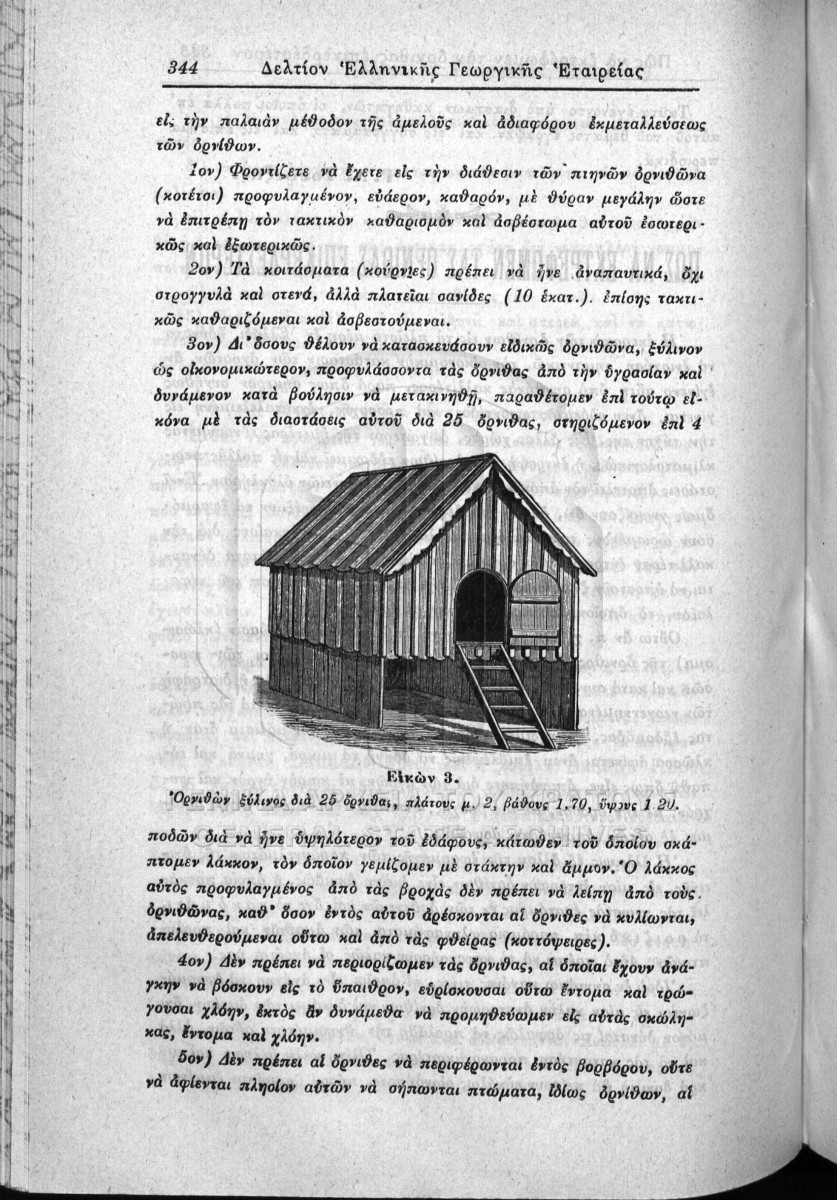 344 Δελτίον Ἑλληνικῆς Γεωργικῆς Ἑταιρείας
εἰς τὴν παλαιὰν μέθοδον τῆς ἀμελοῦς καὶ ἀδιαφόρου ἐκμεταλλεύσεως
τῶν ὀρνίθων.
1ον) Φροντίζετε νὰ ἔχετε εἰς τὴν διάθεσιν τῶν πτηνῶν ὀρνιθῶνα
(κοτέτσι) προφυλαγμένον, εὐάερον, καθαρόν, μὲ θύραν μεγάλην ὥστε
νὰ ἐπιτρέπῃ τὸν τακτικὸν καθαρισμὸν καὶ ἀσβέστωμα αὐτοῦ ἐσωτερι-
κῶς καὶ ἐξωτερικῶς.
2ον) Τὰ κοιτάσματα (κούρνιες) πρέπει νὰ ἦνε ἀναπαυτικά, ὄχι
στρογγυλὰ καὶ στενά, ἀλλὰ πλατεῖαι σανίδες (10 ἑκατ.). ἐπίσης τακτι-
κῶς καθαριζόμεναι καὶ ἀσβεστούμεναι.
3ον) Δι᾿ ὅσους θέλουν νὰ κατασκευάσουν εἰδικῶς ὀρνιθῶνα, ξύλινον
ὡς οἰκονομικώτερον, προφυλάσσοντα τὰς ὄρνιθας ἀπὸ τὴν ὑγρασίαν καὶ
δυνάμενον κατὰ βούλησιν νὰ μετακινηθῇ, παραθέτομεν ἐπὶ τούτῳ εἰ-
κόνα μὲ τὰς διαστάσεις αὐτοῦ διὰ 25 ὄρνιθας, στηριζόμενον ἐπὶ 4
Εἰκὼν 3.
Ὀρνιθὼν ξύλινος διὰ 25 ὄρνιθας, πλάτους μ. 2, βάθους 1.70, ὕψους 1.20.
ποδῶν διὰ νὰ ἦνε ὑψηλότερον τοῦ ἐδάφους, κάτωθεν τοῦ ὁποίου σκά-
πτομεν λάκκον, τὸν ὁποῖον γεμίζομεν μὲ στάκτην καὶ ἄμμον. Ὁ λάκκος
αὐτὸς προφυλαγμένος ἀπὸ τὰς βροχὰς δὲν πρέπει νὰ λείπῃ ἀπὸ τοὺς
ὀρνιθῶνας, καθ᾿ ὅσον ἐντὸς αὐτοῦ ἀρέσκονται αἱ ὄρνιθες νὰ κυλίωνται,
ἀπελευθερούμεναι οὕτω καὶ ἀπὸ τὰς φθείρας (κοττόψειρες).
4ον) Δὲν πρέπει νὰ περιορίζωμεν τὰς ὄρνιθας, αἱ ὁποῖαι ἔχουν ἀνά-
γκην νὰ βόσκουν εἰς τὸ ὕπαιθρον, εὑρίσκουσαι οὕτω ἔντομα καὶ τρώ-
γουσαι χλόην, ἐκτὸς ἂν δυνάμεθα νὰ προμηθεύωμεν εἰς αὐτὰς σκώλη-
κας, ἔντομα καὶ χλόην.
5ον) Δὲν πρέπει αἱ ὄρνιθες νὰ περιφέρωνται ἐντὸς βορβόρου, οὔτε
νὰ ἀφίενται πλησίον αὐτῶν νὰ σήπωνται πτώματα, ἰδίως ὀρνίθων, αἱ